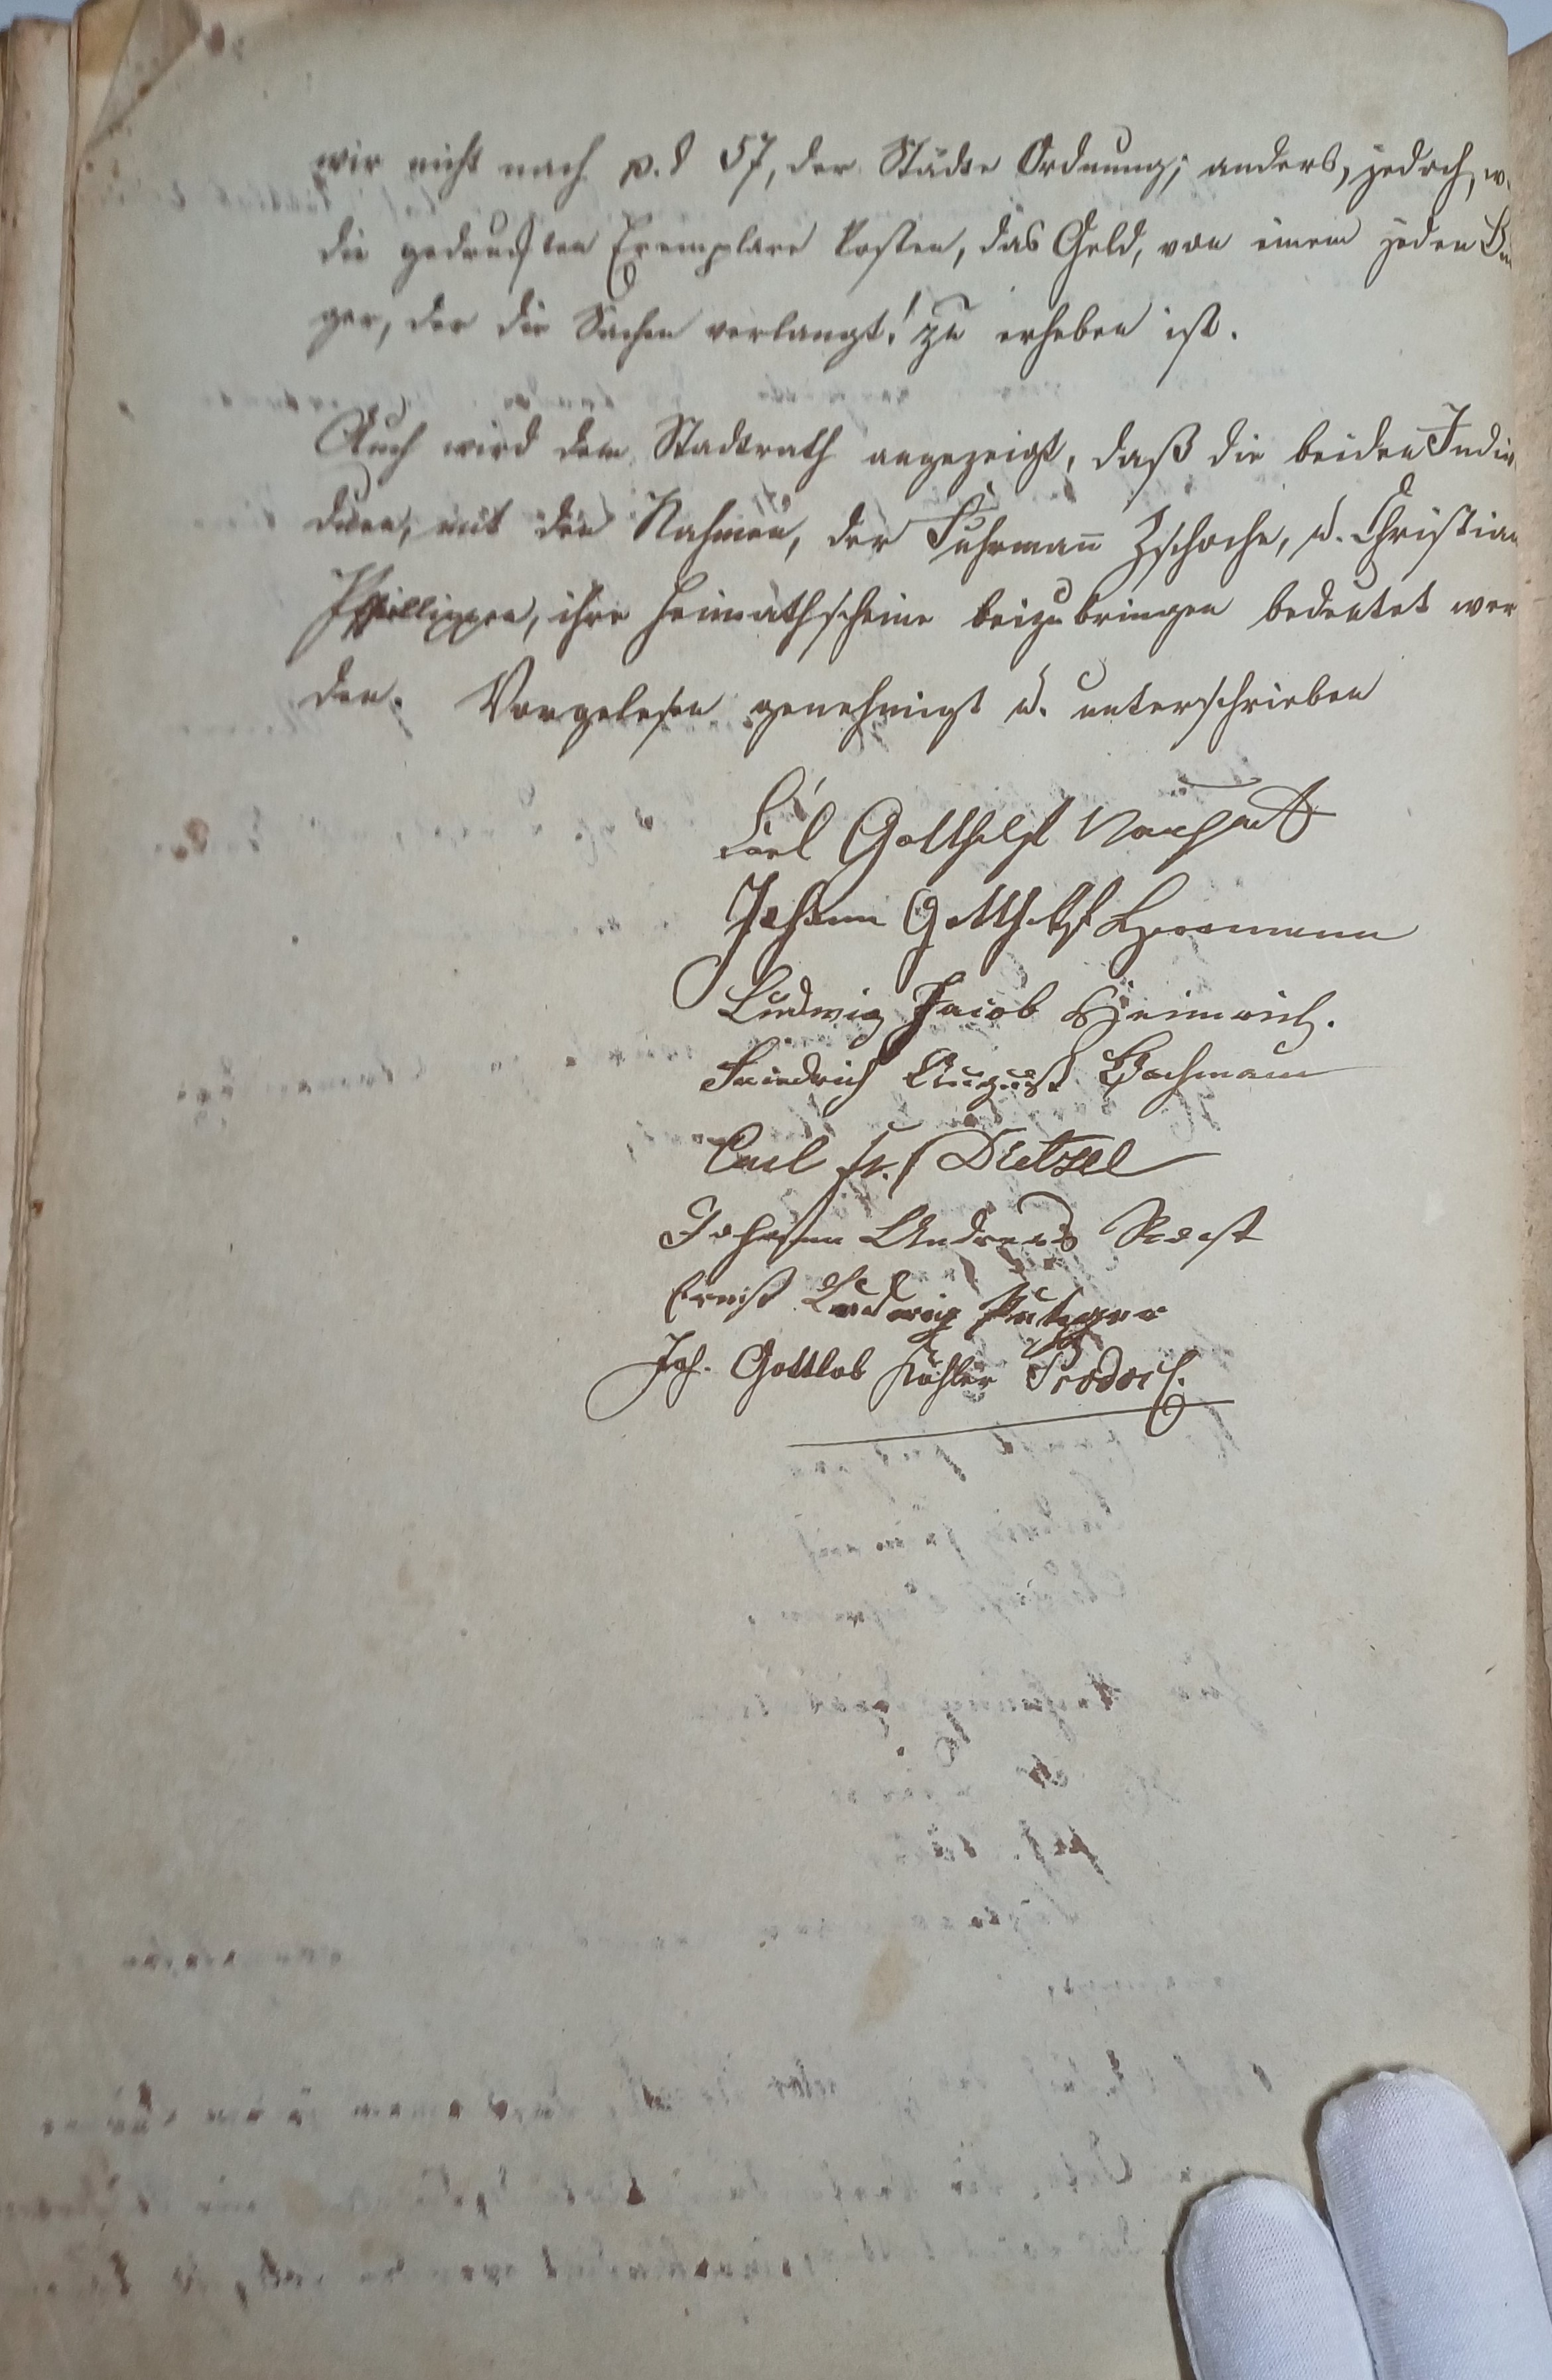 wir nicht nach p. § 57, der Städte Ordnung; anders, jedoch, w
die gedruckten Exemplare kosten, das Geld, von einem jeden Bür
ger, der die Sachen verlangt! zu erheben ist.
Auch wird dem Stadtrath angezeigt, daß die beiden Indivi
duen, mit den Nahmen, der Fuhrmann Zschoche, u. Christian
Phillippen, ihre Heimathscheine beizubringen bedeutet wer
den. Vorgelesen genehmigt u. unterschrieben
Carl Gotthelf
Johann Gotthelf Herrmann
Ludwig Jacob Heimrich.
Friedrich August Bachmann
Carl Fr. Dietzel
Johann Andreas
Ernst Ludwig Putzger
Joh. Gottlob Köhler